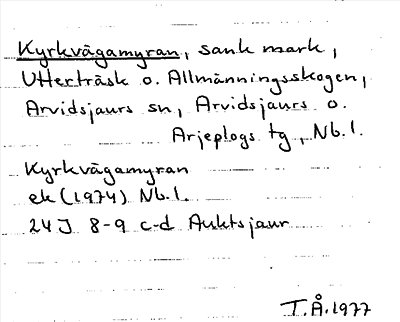 Kyrkvägamyran, sank mark,
Utterträsk o. Allmänningsskogen,
Arvidsjaurs sn, Arvidsjaurs o.
Arjeplogs tg, Nb.l.
Kyrkvägamyran
ek (1974) Nb.l.
24J 8-9 c-d Auktsjaur
T.Å.1977